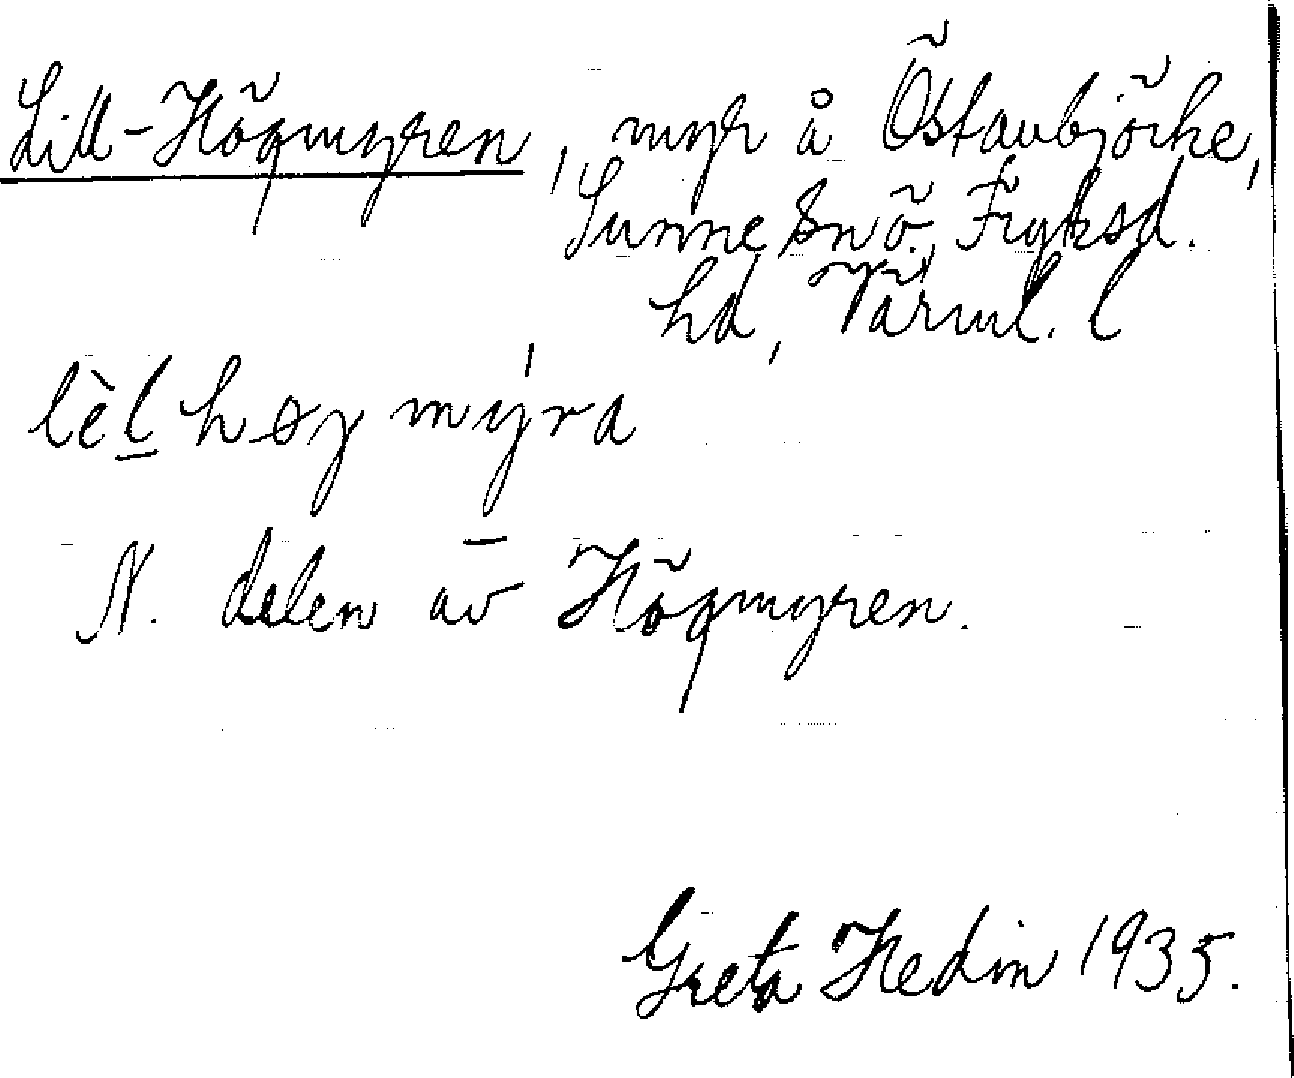 Lill-Högmyren, myr å Östanbjörke,
Sunne sn ö., Fryksd.
hd, Värml. l
lèl høgmýra
N. delen av Högmyren.
Greta Hedin 1935.